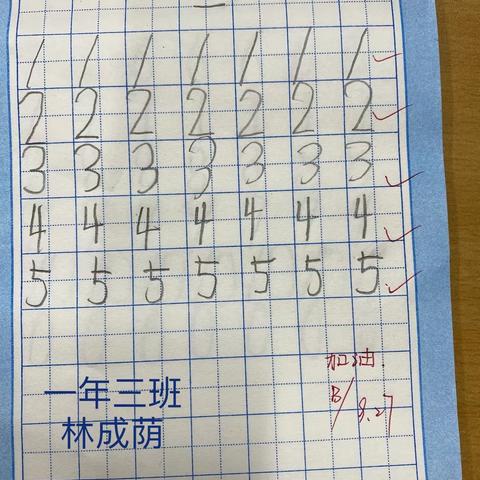 一
1 1 1 1 1 1 1
2 2 2 2 2 2 2
3 3 3 3 3 3 3
4 4 4 4 4 4 4
5 5 5 5 5 5 5
加油.
B/9.27
一年三班
林成荫